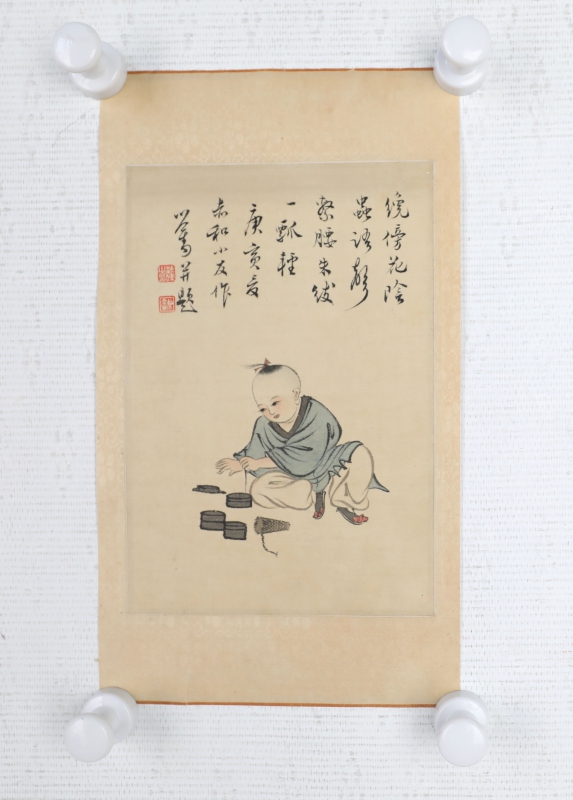 繞傍花陰
蟲語
繫腰朱紱
一瓢輕
庚寅夏
和小友作
心畬并題